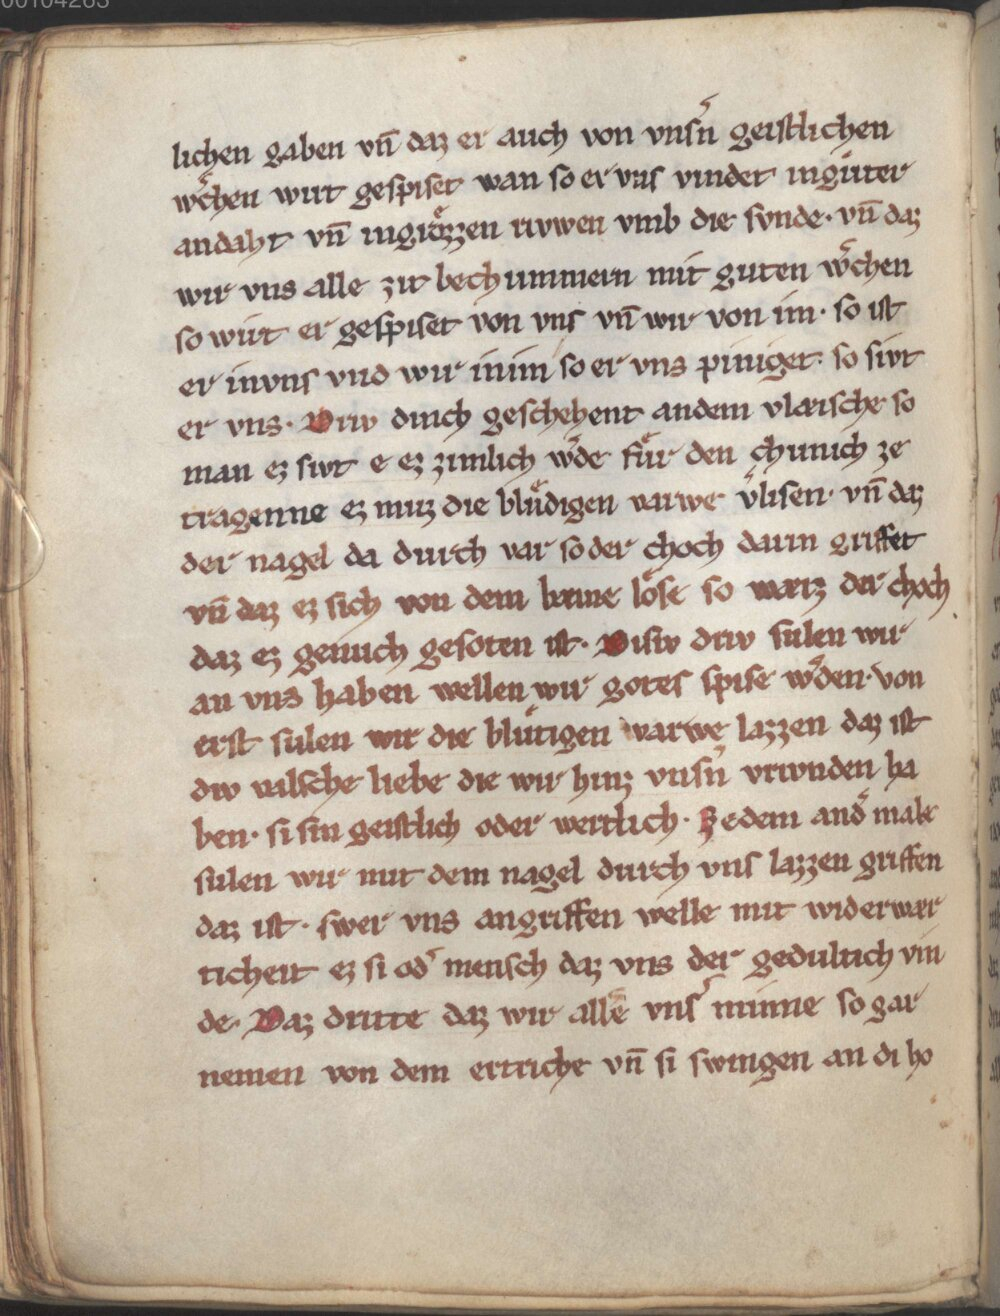 00104263
lichen gaben vn̄ daz er auch von vnsn̾ geistlichen
w̾chen wirt gespiset wan so er vns vindet in gůter
andaht vn̄ in grözzen rivwen vmb die sunde· vn̄ daz
wir vns alle zit bechummern mit guten w̾chen
so wirt er gespiset von vns vn̄ wir von im· so ist
er in vns vnd wir in im so er vns piniget· so sivt
er vns· Driv dinch geschehent an dem vlæische so
man ez sivt e ez zimlich w̾de fůr den chunich ze
tragenne ez muz die blůdigen varwe v̾lisen· vn̄ daz
der nagel da durch var so der choch darin griffet
vn̄ daz ez sich von dem beine löse so waiz der choch
daz ez genuch gesoten ist· Disiv driv sulen wir
an vns haben wellen wir gotes spise w̾den· von
erst sulen wir die blůtigen varwe lazzen daz ist
div valsche liebe die wir hinz vnsn̾ vrivnden ha
ben· si sin geistlich oder wertlich· Zedem and̾ male
sulen wir mit dem nagel durch vns lazzen griffen
daz ist· swer vns angriffen welle mit widerwær
ticheit ez si od̾ mensch daz vns der gedultich vin
de· Daz dritte daz wir alle vns̾ minne so gar
nemen von dem ertriche vn̄ si swingen an di ho